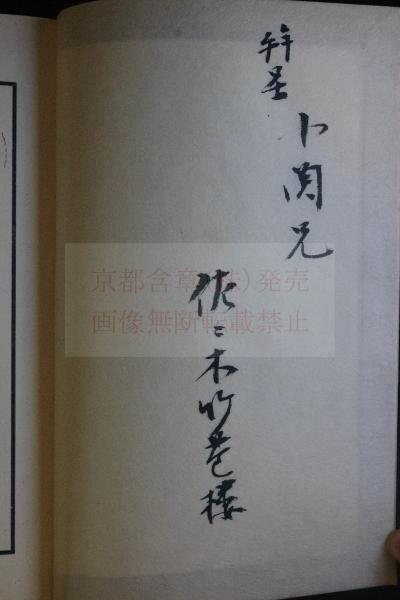 卜関兄
佐々木竹苞楼
京都含章(株)発売
画像無断転載禁止